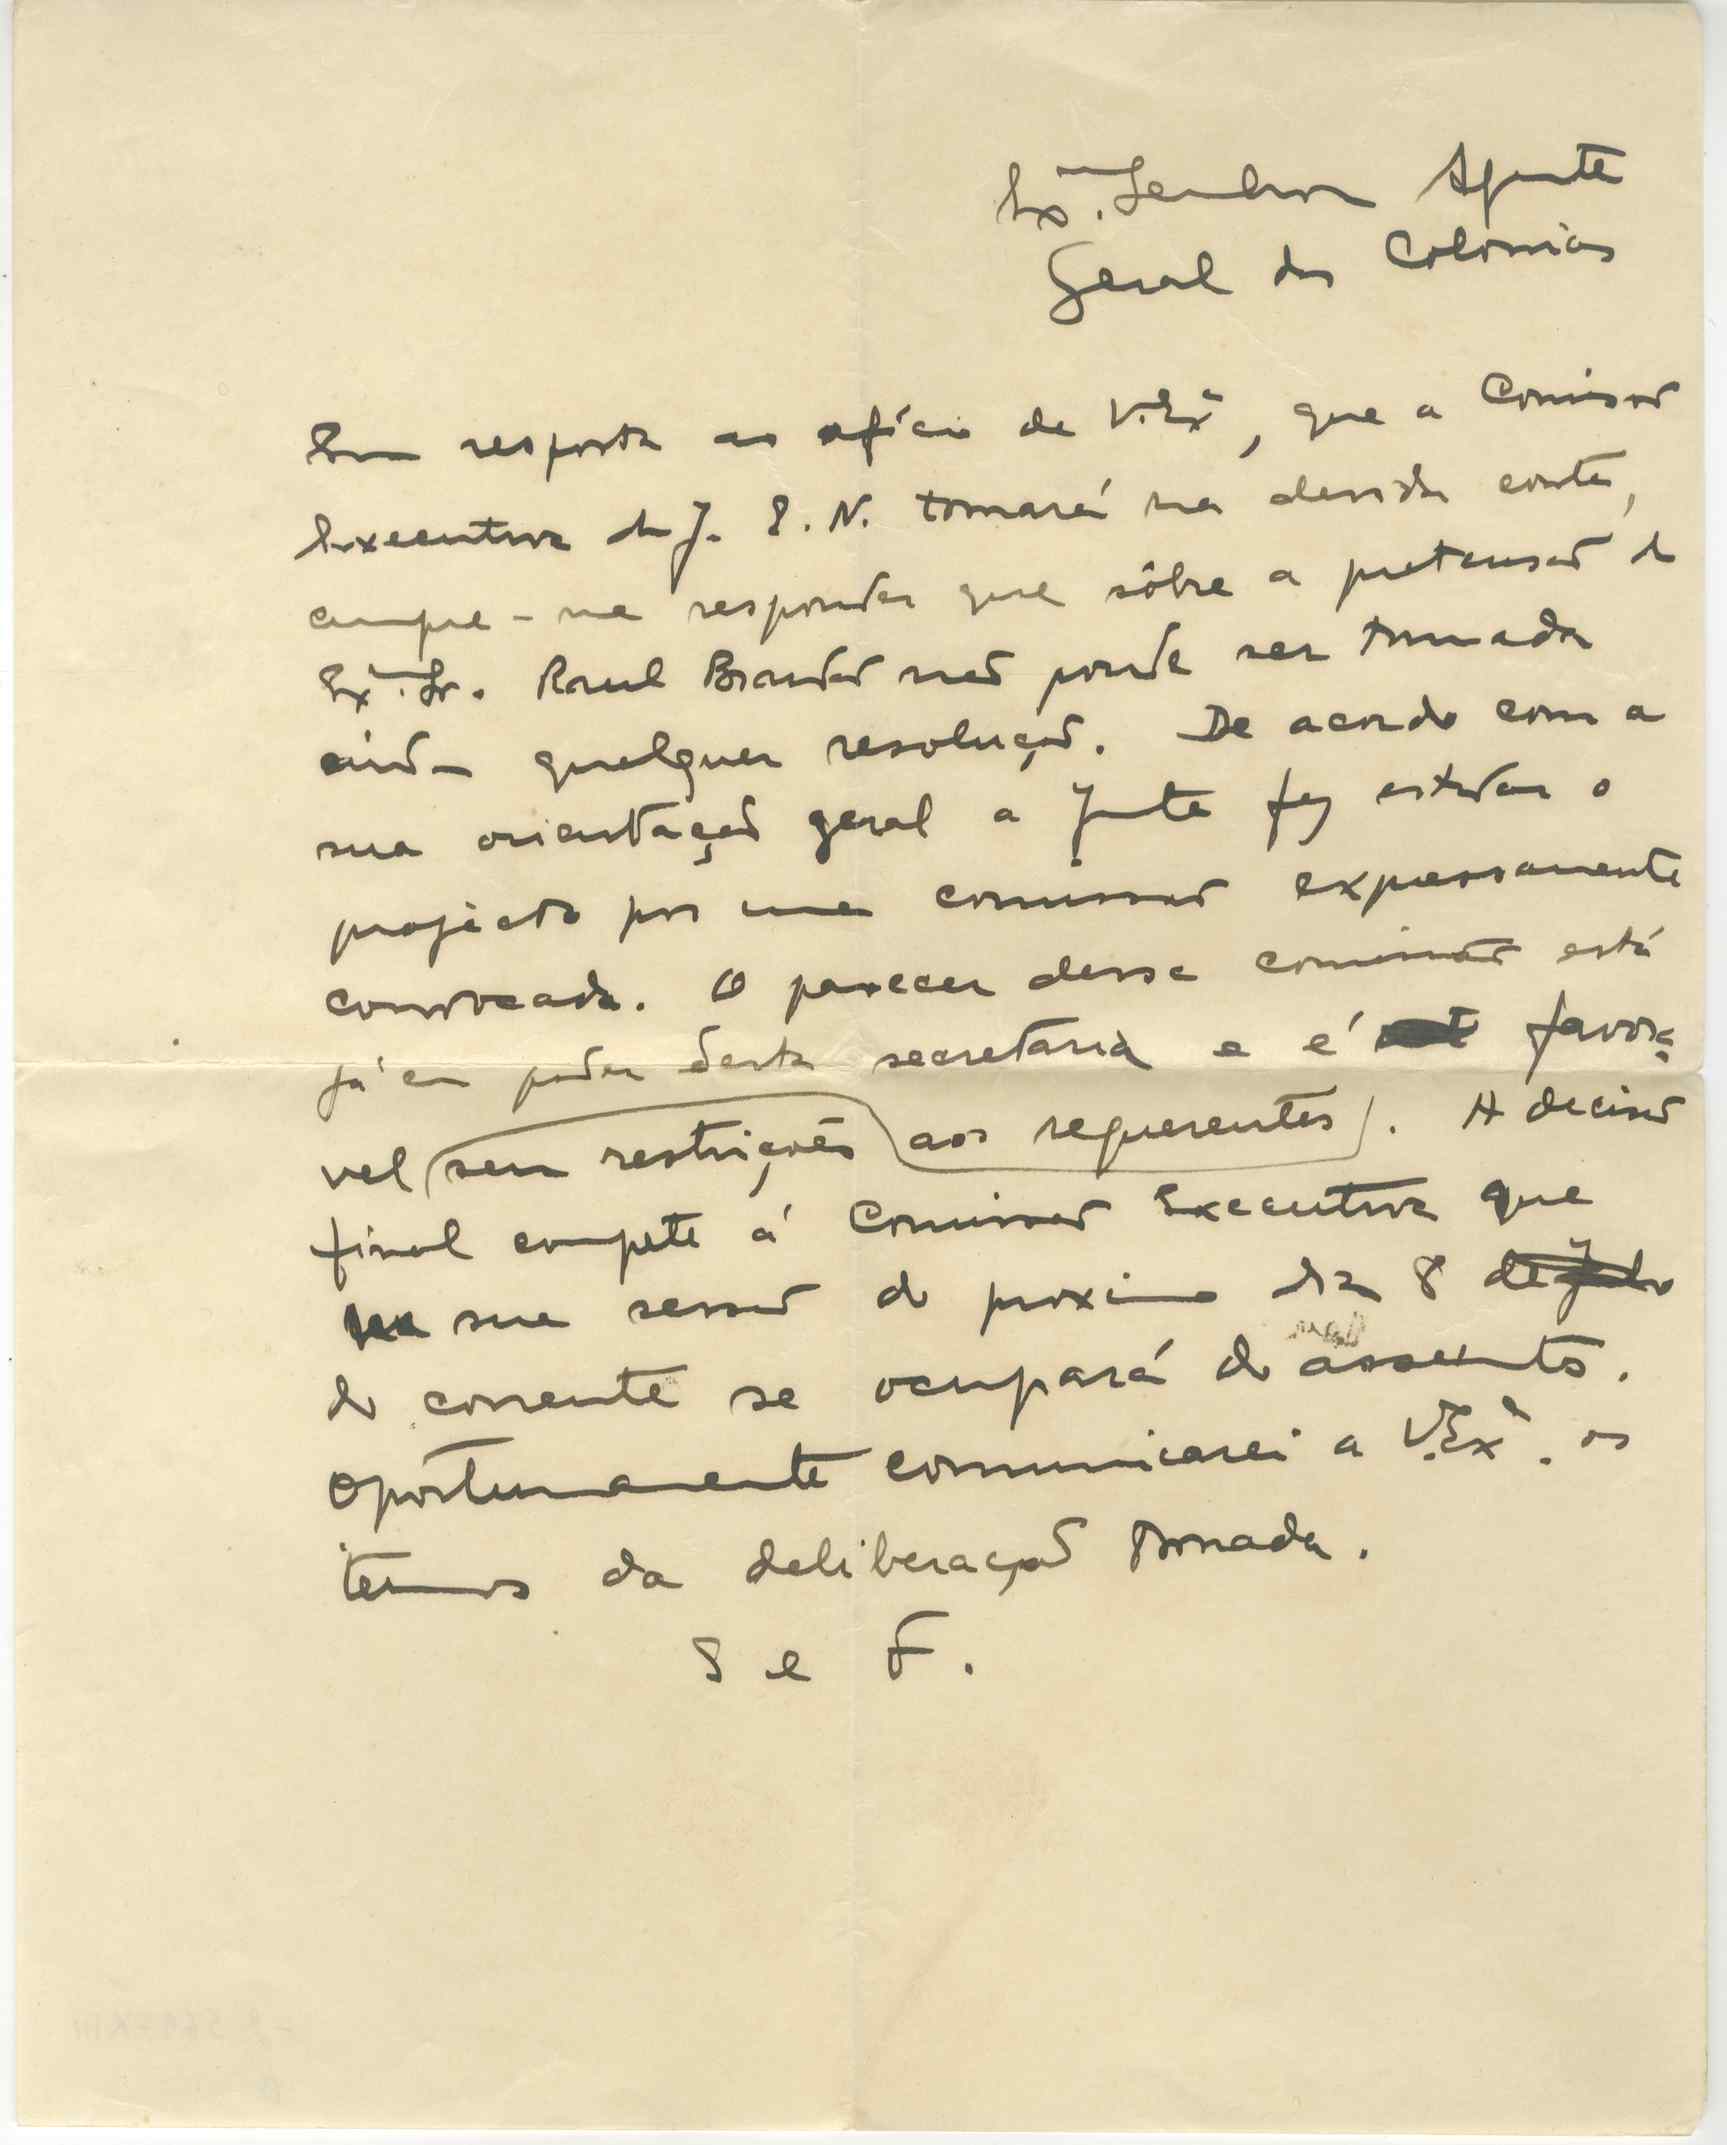 Exmo. Senhor Agente
Geral das Colonias
Em resposta ao ofício de V. Exª, que a Comissão
Executiva da J. E. N. tomará na devida conta,
cumpre-me responder que sôbre a pretensão do
Exmo. Sr. Raul Brandão não poude ser tomada
ainda qualquer resolução. De acordo com a
sua orientação geral a Junta fez estudar o
projecto por uma comissão expressamente
convocada. O parecer dessa comissão está
já em poder desta secretaria e é favora=
vel sem restrições aos requerentes. A decisão
final compete á Comissão Executiva que
na sua sessão do proximo dia 8 de Julho
do corrente se ocupará do assunto.
Oportunamente comunicarei a V. Exª. os
termos da deliberação tomada.
S e F.